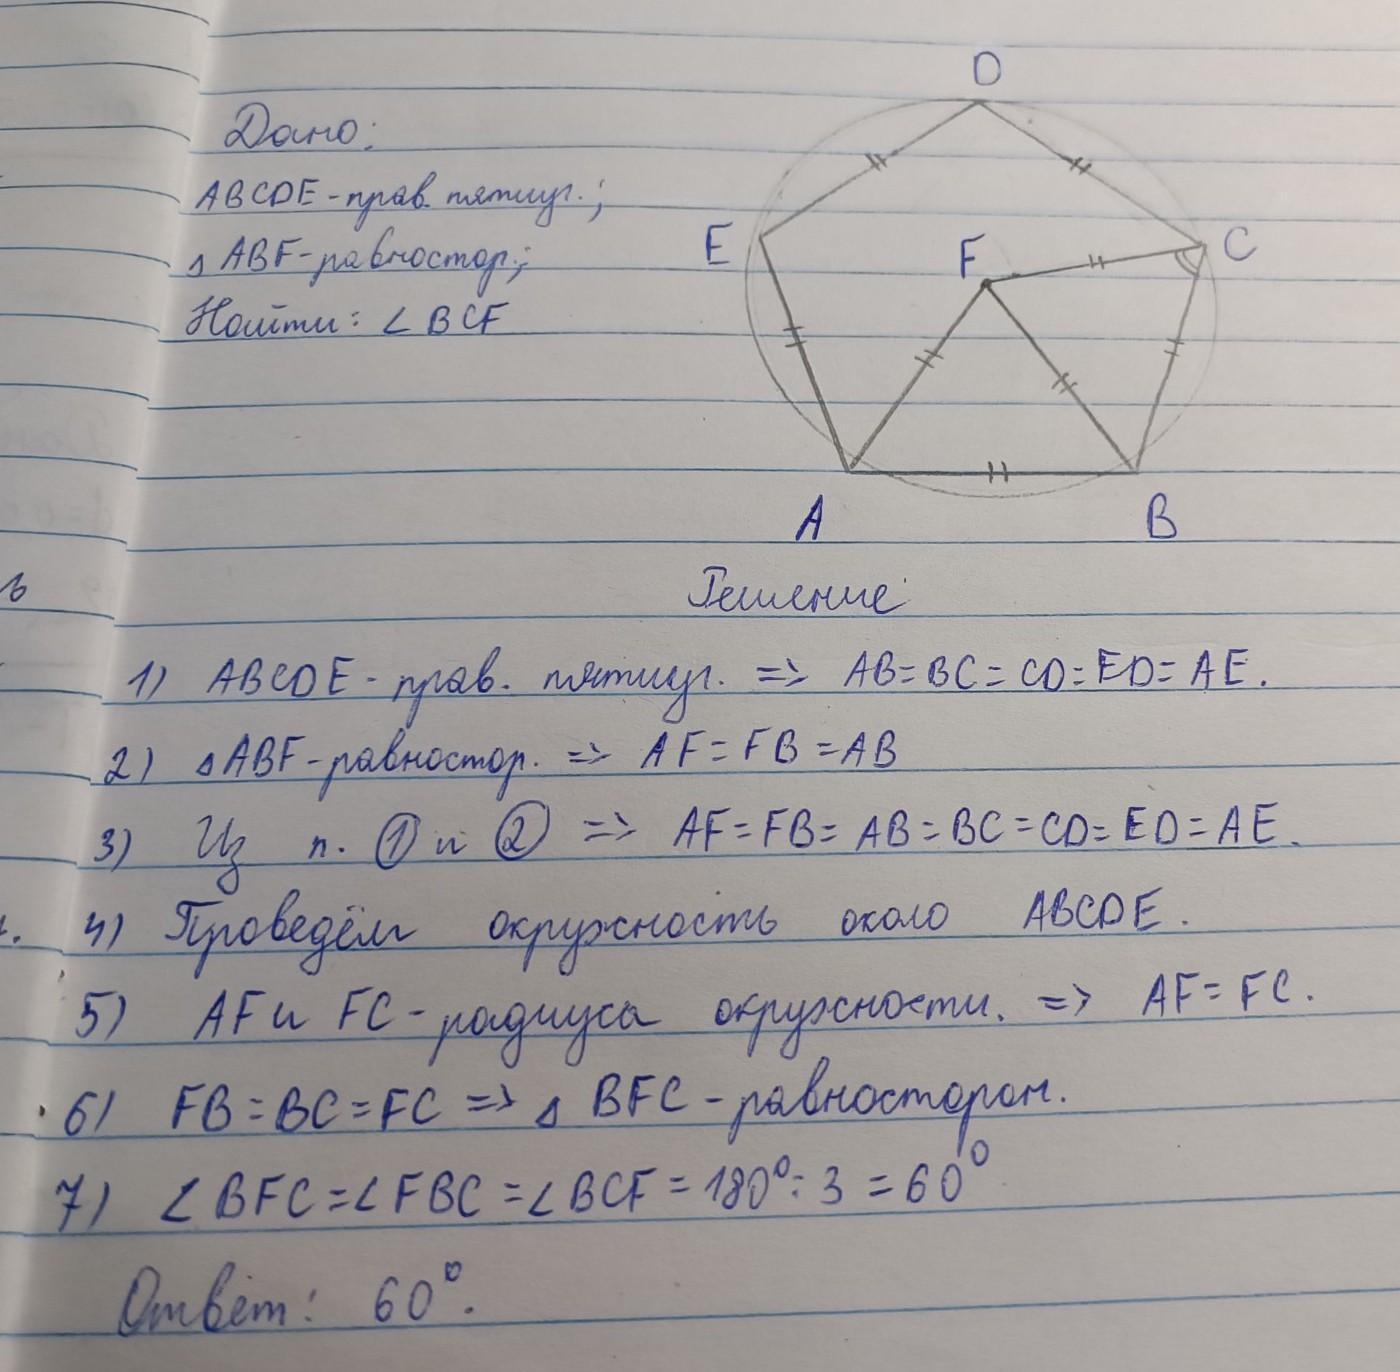 Дано:
ABCDE - прав. пятиуг.;
△ ABF - равностор.;
Найти: ∠ BCF
D
E
F
C
A
B
Решение
1) ABCDE - прав. пятиуг. => AB = BC = CD = ED = AE.
2) △ ABF - равностор. => AF = FB = AB
3) Из п. ① и ② => AF = FB = AB = BC = CD = ED = AE.
4) Проведём окружность около ABCDE.
5) AF и FC - радиуса окружности. => AF = FC.
6) FB = BC = FC => △ BFC - равносторон.
7) ∠ BFC = ∠ FBC = ∠ BCF = 180° : 3 = 60°
Ответ: 60°.